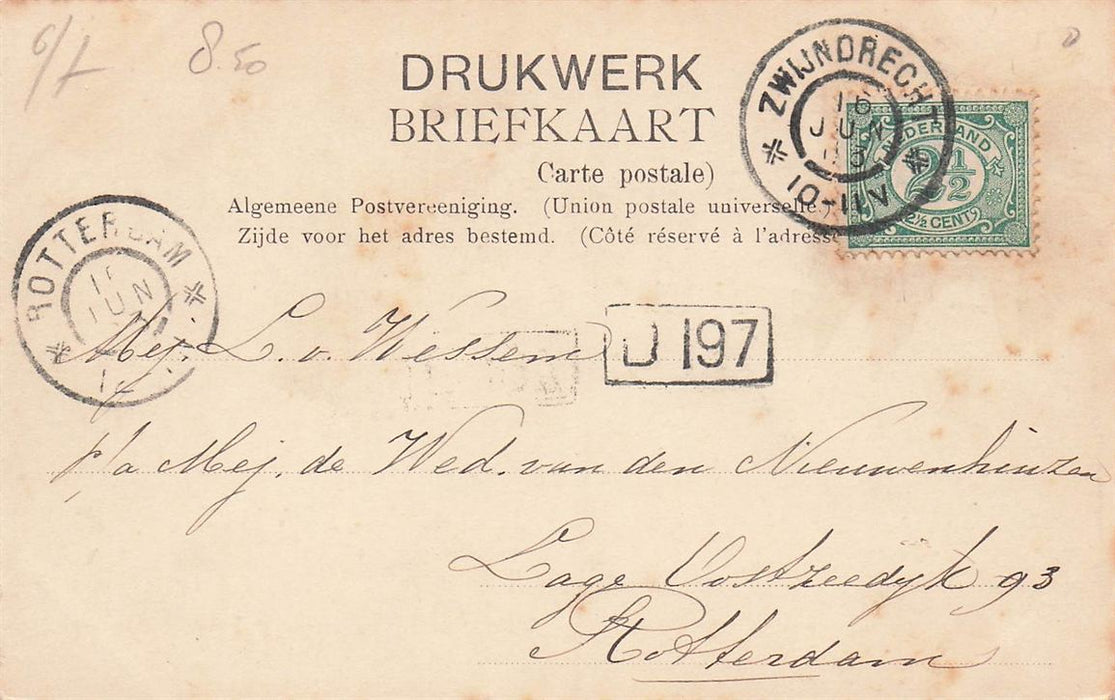 8.50
DRUKWERK
BRIEFKAART
Carte postale)
Algemeene Postvereeniging. (Union postale universelle.)
Zijde voor het adres bestemd. (Côté réservé à l'adresse
ZWIJNDRECHT
16
JUN
10-11V
NEDERLAND
2½
(2½ CENT)
ROTTERDAM
JUN
Mej. L. v. Wessem
U 197
p/a Mej. de Wed. van den Nieuwenhuizen
Lage Oostzeedyk 93
Rotterdam